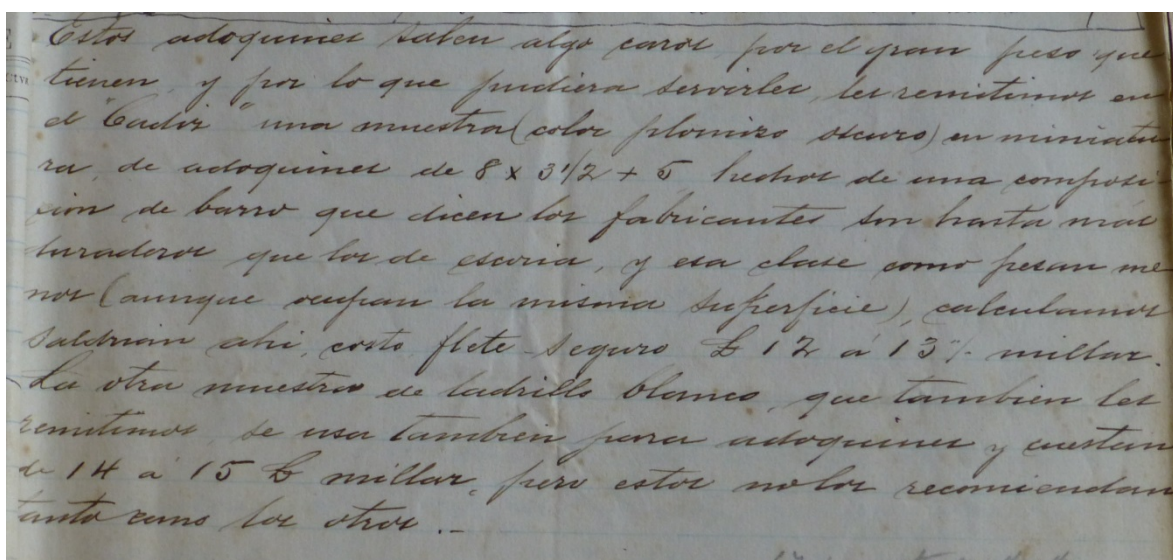 Estos adoquines salen algo caros por el gran peso que
tienen, y por lo que pudiera servirles, les remitimos en
el "Cadiz" una muestra (color plomizo oscuro) en miniatu
ra, de adoquines de 8 x 3 1/2 + 5 hechos de una composi
cion de barro que dicen los fabricantes son hasta mas
duraderos que los de escoria, y esa clase como pesan me
nos (aunque ocupan la misma superficie), calculamos
saldrian ahi, costo flete-seguro £ 12 á 13 %. millar.
La otra muestra de ladrillo blanco, que tambien les
remitimos, se usa tambien para adoquines y cuestan
de 14 á 15 £ millar, pero estos no los recomiendan
tanto como los otros.-